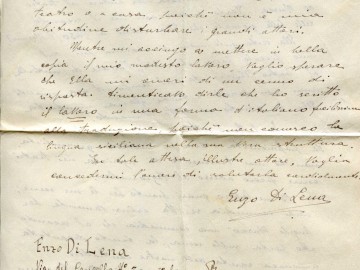 teatro o a casa, perchè non è mia
abitudine disturbare i grandi attori.
Mentre mi accingo a mettere in bella
copia il mio modesto lavoro, voglio sperare
che Ella mi onori di un cenno di
risposta. Dimenticavo dirle che ho scritto
il lavoro in una forma d'italiano facilissima
alla traduzione, poichè non conosco la
lingua siciliana nella sua vera struttura.
In tale attesa, illustre attore, voglia
concedermi l'onore di salutarla cordialmente.
Enzo Di Lena
Enzo Di Lena
Via del